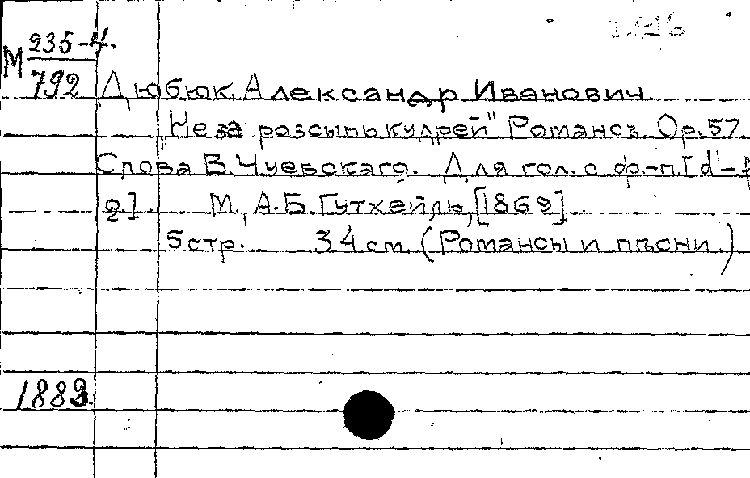 М 235-4.
792 Дюбюк Александр Иванович
„Не за россыпь кудрей" Романсъ. Ор.57.
Слова В.Чуевскаго. Для гол. с ф.-п. [d'-f
2]. М., А.Б.Гутхейль, [1869].
5 стр. 34 см. (Романсы и пѣсни.)
1883.